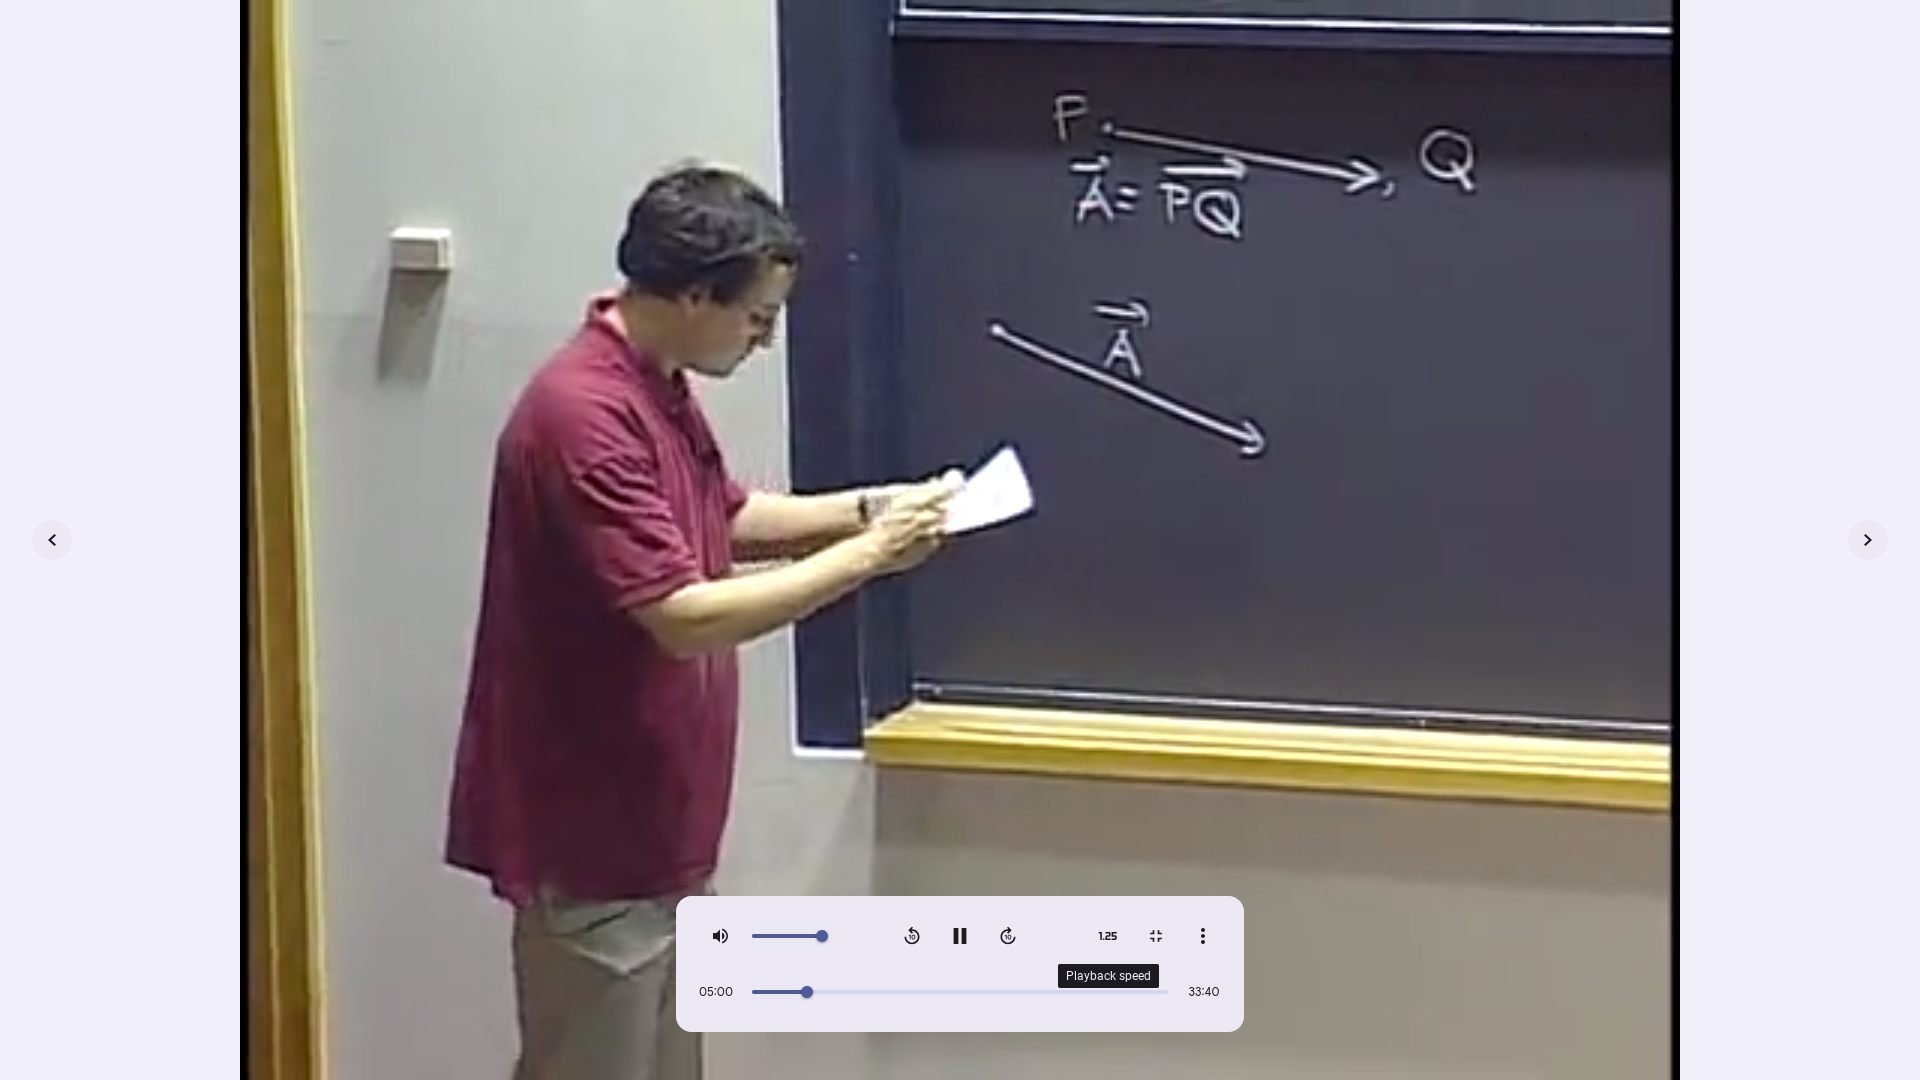 P Q
A = PQ
A
1.25
Playback speed
05:00 33:40